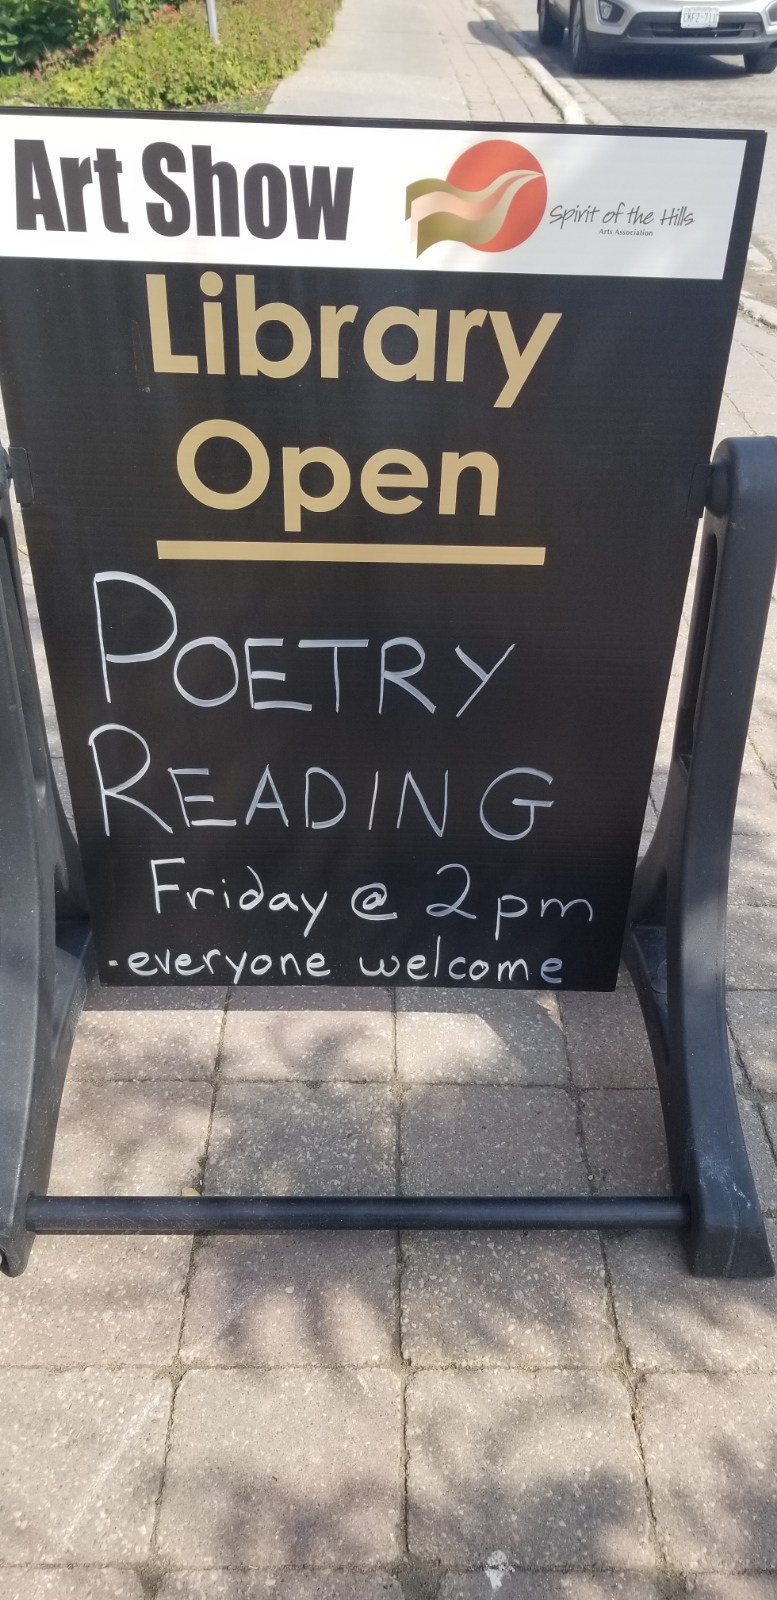 Art Show
Spirit of the Hills
Arts Association
Library
Open
POETRY
READING
Friday @ 2 pm
- everyone welcome